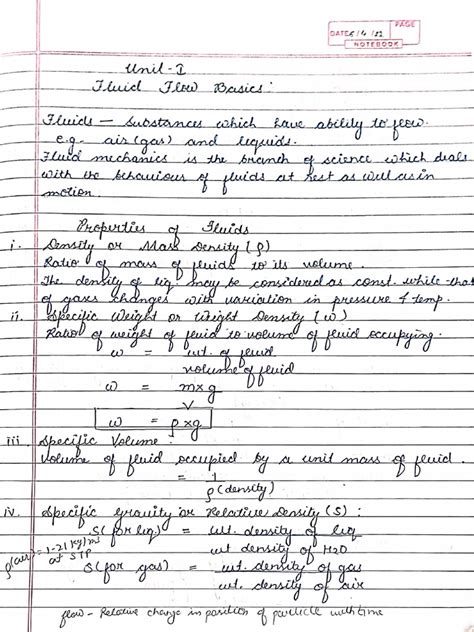 PAGE
DATE 5/4/22
NOTEBOOK
Unit-I
Fluid Flow Basics:
Fluids — Substances which have ability to flow.
e.g. air (gas) and liquids.
Fluid mechanics is the branch of science which deals
with the behaviour of fluids at rest as well as in
motion.
Properties of Fluids
i. Density or Mass Density (ρ)
Ratio of mass of fluids to its volume.
The density of liq. may be considered as const. while that
of gases changes with variation in pressure & temp.
ii. Specific Weight or Weight Density (ω)
Ratio of weight of fluid to volume of fluid occupying.
ω = wt. of fluid
volume of fluid
ω = m×g
V
ω = ρ×g
iii. Specific Volume:
Volume of fluid occupied by a unit mass of fluid.
= 1
ρ(density)
iv. Specific gravity or Relative Density (S):
S(for liq.) = wt. density of liq
wt density of H2O
ρ(air) = 1.21 kg/m³
at STP
S(for gas) = wt. density of gas
wt. density of air
flow - Relative change in position of particle with time